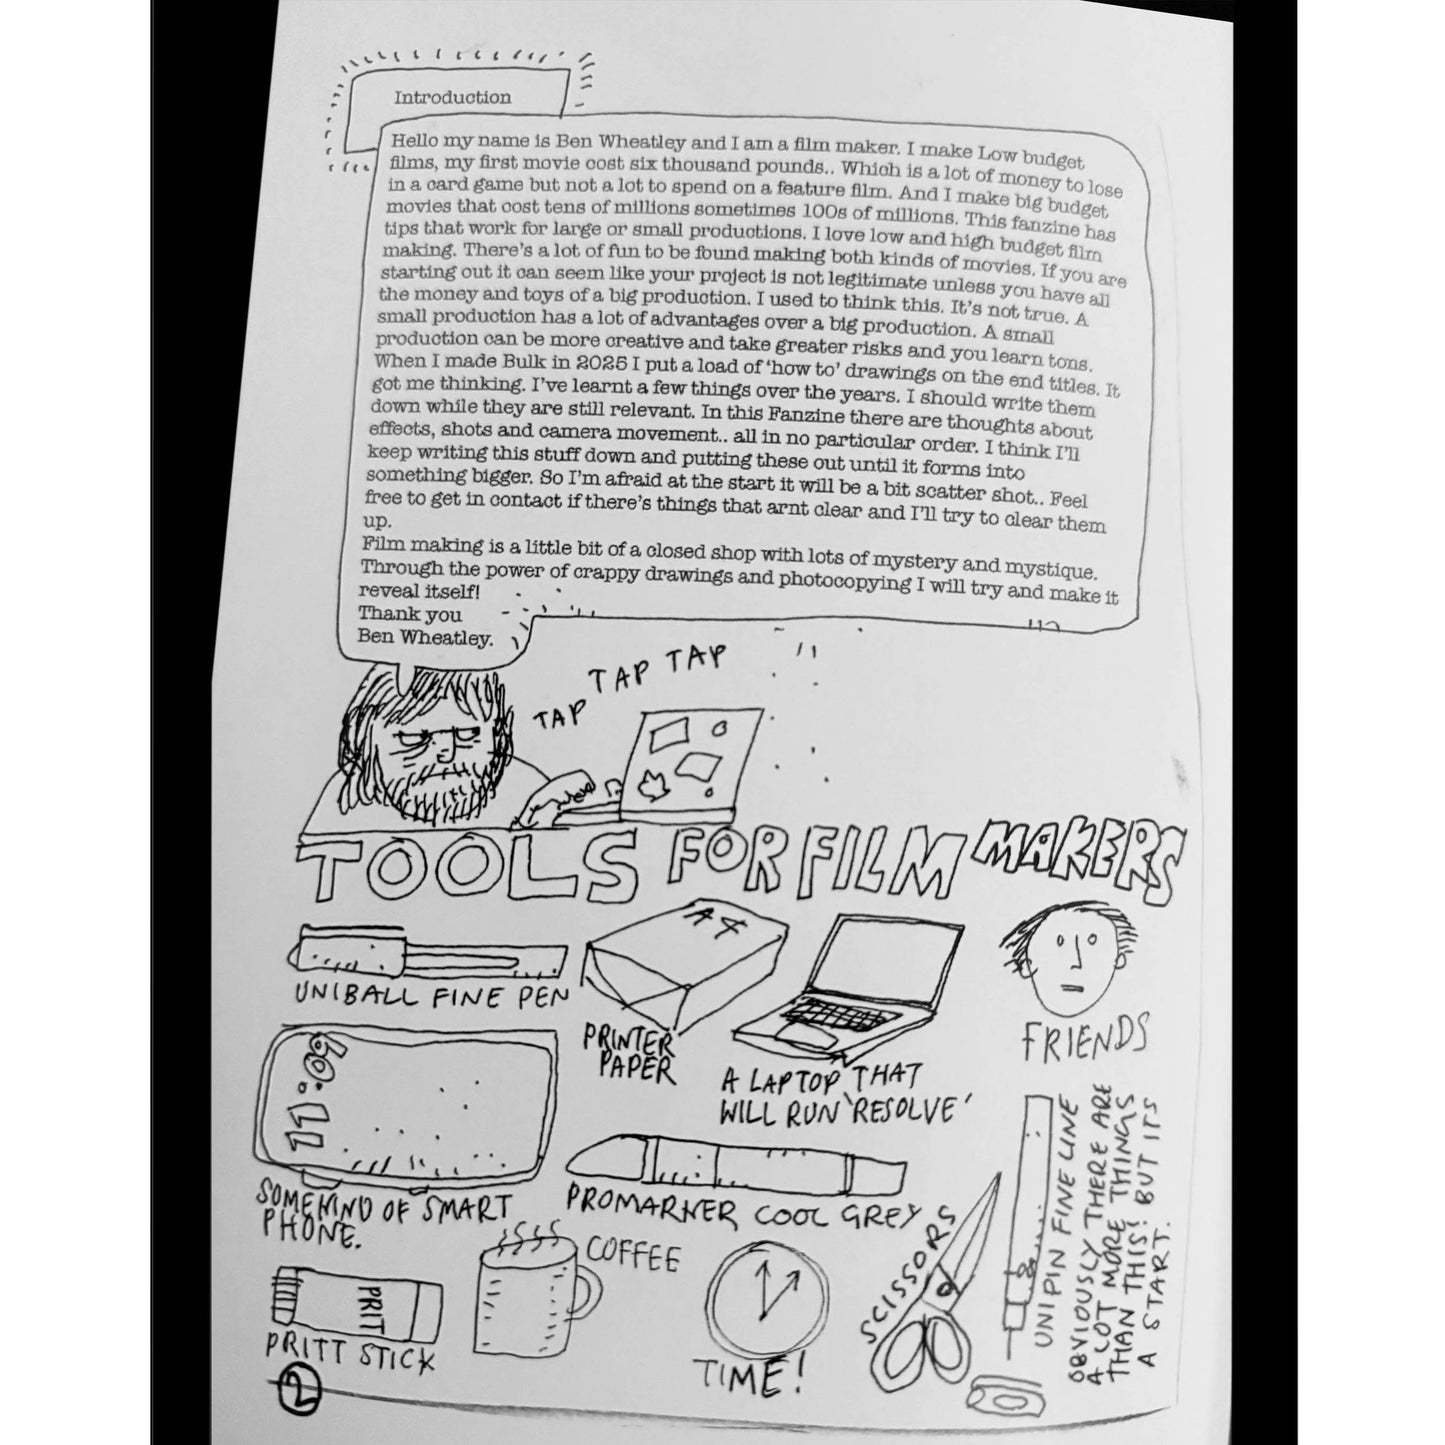 Introduction
Hello my name is Ben Wheatley and I am a film maker. I make Low budget
films, my first movie cost six thousand pounds.. Which is a lot of money to lose
in a card game but not a lot to spend on a feature film. And I make big budget
movies that cost tens of millions sometimes 100s of millions. This fanzine has
tips that work for large or small productions. I love low and high budget film
making. There's a lot of fun to be found making both kinds of movies. If you are
starting out it can seem like your project is not legitimate unless you have all
the money and toys of a big production. I used to think this. It's not true. A
small production has a lot of advantages over a big production. A small
production can be more creative and take greater risks and you learn tons.
When I made Bulk in 2025 I put a load of 'how to' drawings on the end titles. It
got me thinking. I've learnt a few things over the years. I should write them
down while they are still relevant. In this Fanzine there are thoughts about
effects, shots and camera movement.. all in no particular order. I think I'll
keep writing this stuff down and putting these out until it forms into
something bigger. So I'm afraid at the start it will be a bit scatter shot.. Feel
free to get in contact if there's things that arnt clear and I'll try to clear them
up.
Film making is a little bit of a closed shop with lots of mystery and mystique.
Through the power of crappy drawings and photocopying I will try and make it
reveal itself!
Thank you
Ben Wheatley.
TAP TAP TAP
TOOLS FOR FILM MAKERS
UNIBALL FINE PEN
A4
PRINTER
PAPER
A LAPTOP THAT
WILL RUN 'RESOLVE'
FRIENDS
11:09
SOME KIND OF SMART
PHONE.
PROMARKER COOL GREY
SCISSORS
UNIPIN FINE LINE
OBVIOUSLY THERE ARE
A LOT MORE THINGS
THAN THIS! BUT ITS
A START.
PRIT
PRITT STICK
COFFEE
TIME!
2